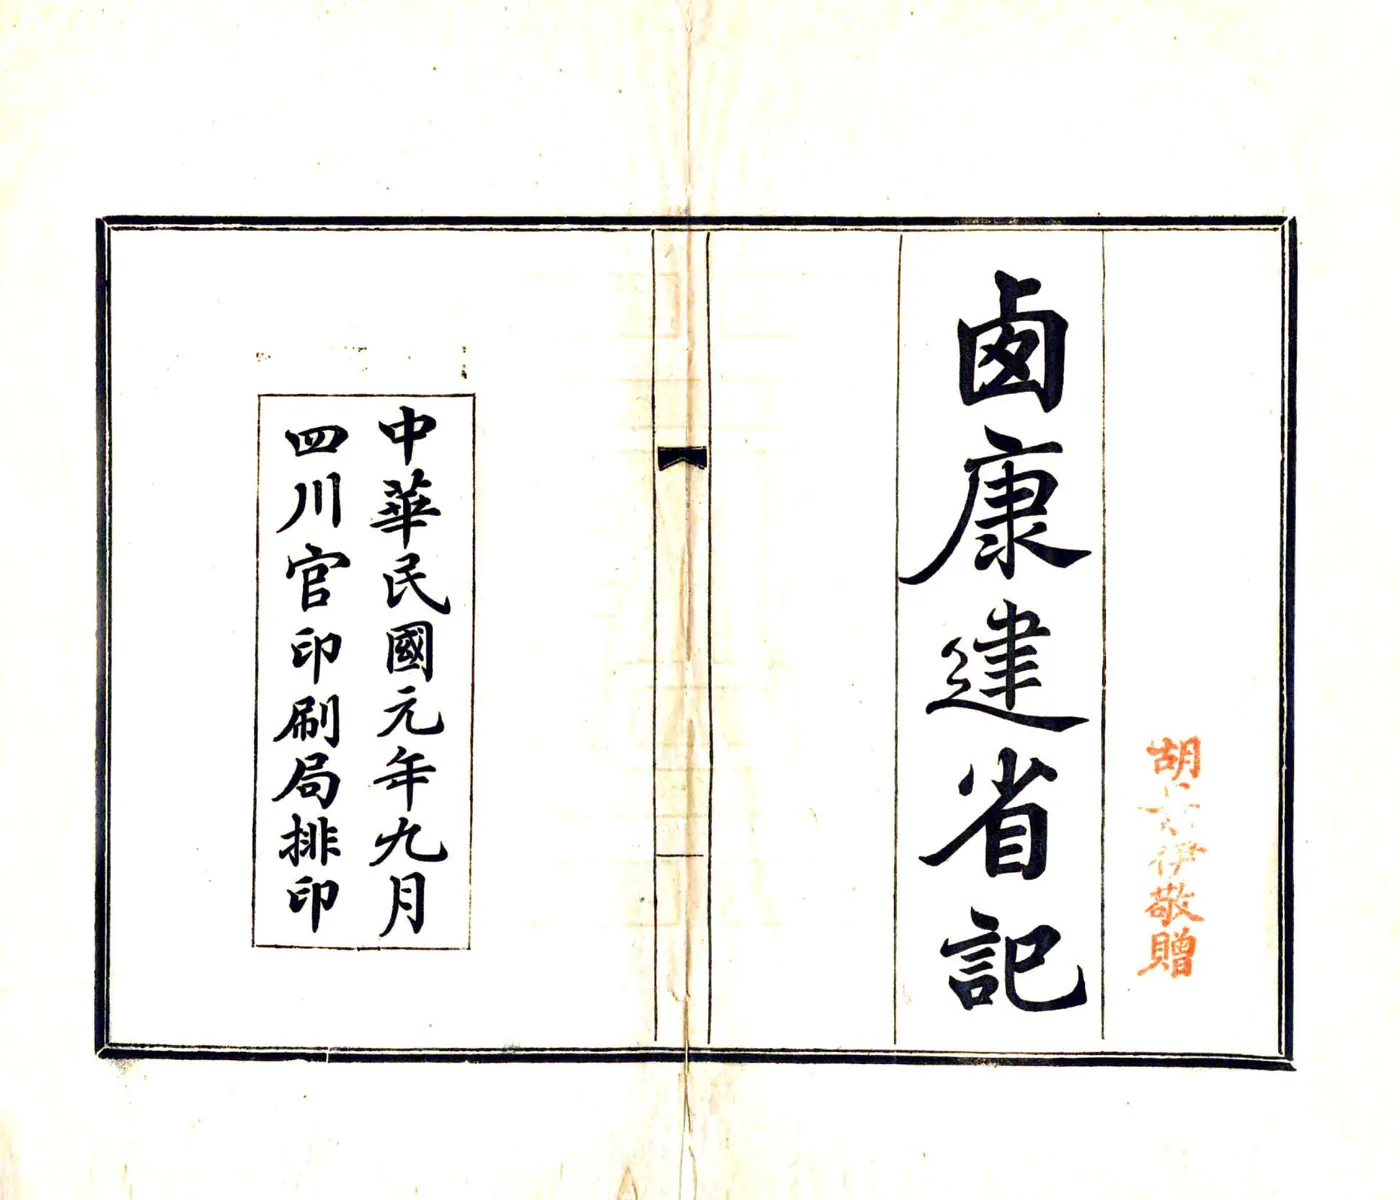 胡伊敬贈
卥康建省記
中華民國元年九月
四川官印刷局排印